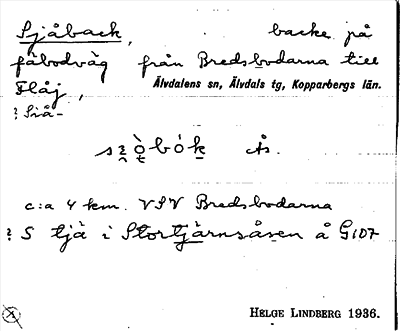 Sjåback, backe på
fäbodväg från Bredsbodarna till
Flåj,
Älvdalens sn, Älvdals tg, Kopparbergs län.
? Siå-
Ås.
c:a 4 km. VSV Bredsbodarna
? S tjä i Stortjärnsåsen å G107
HELGE LINDBERG 1936.